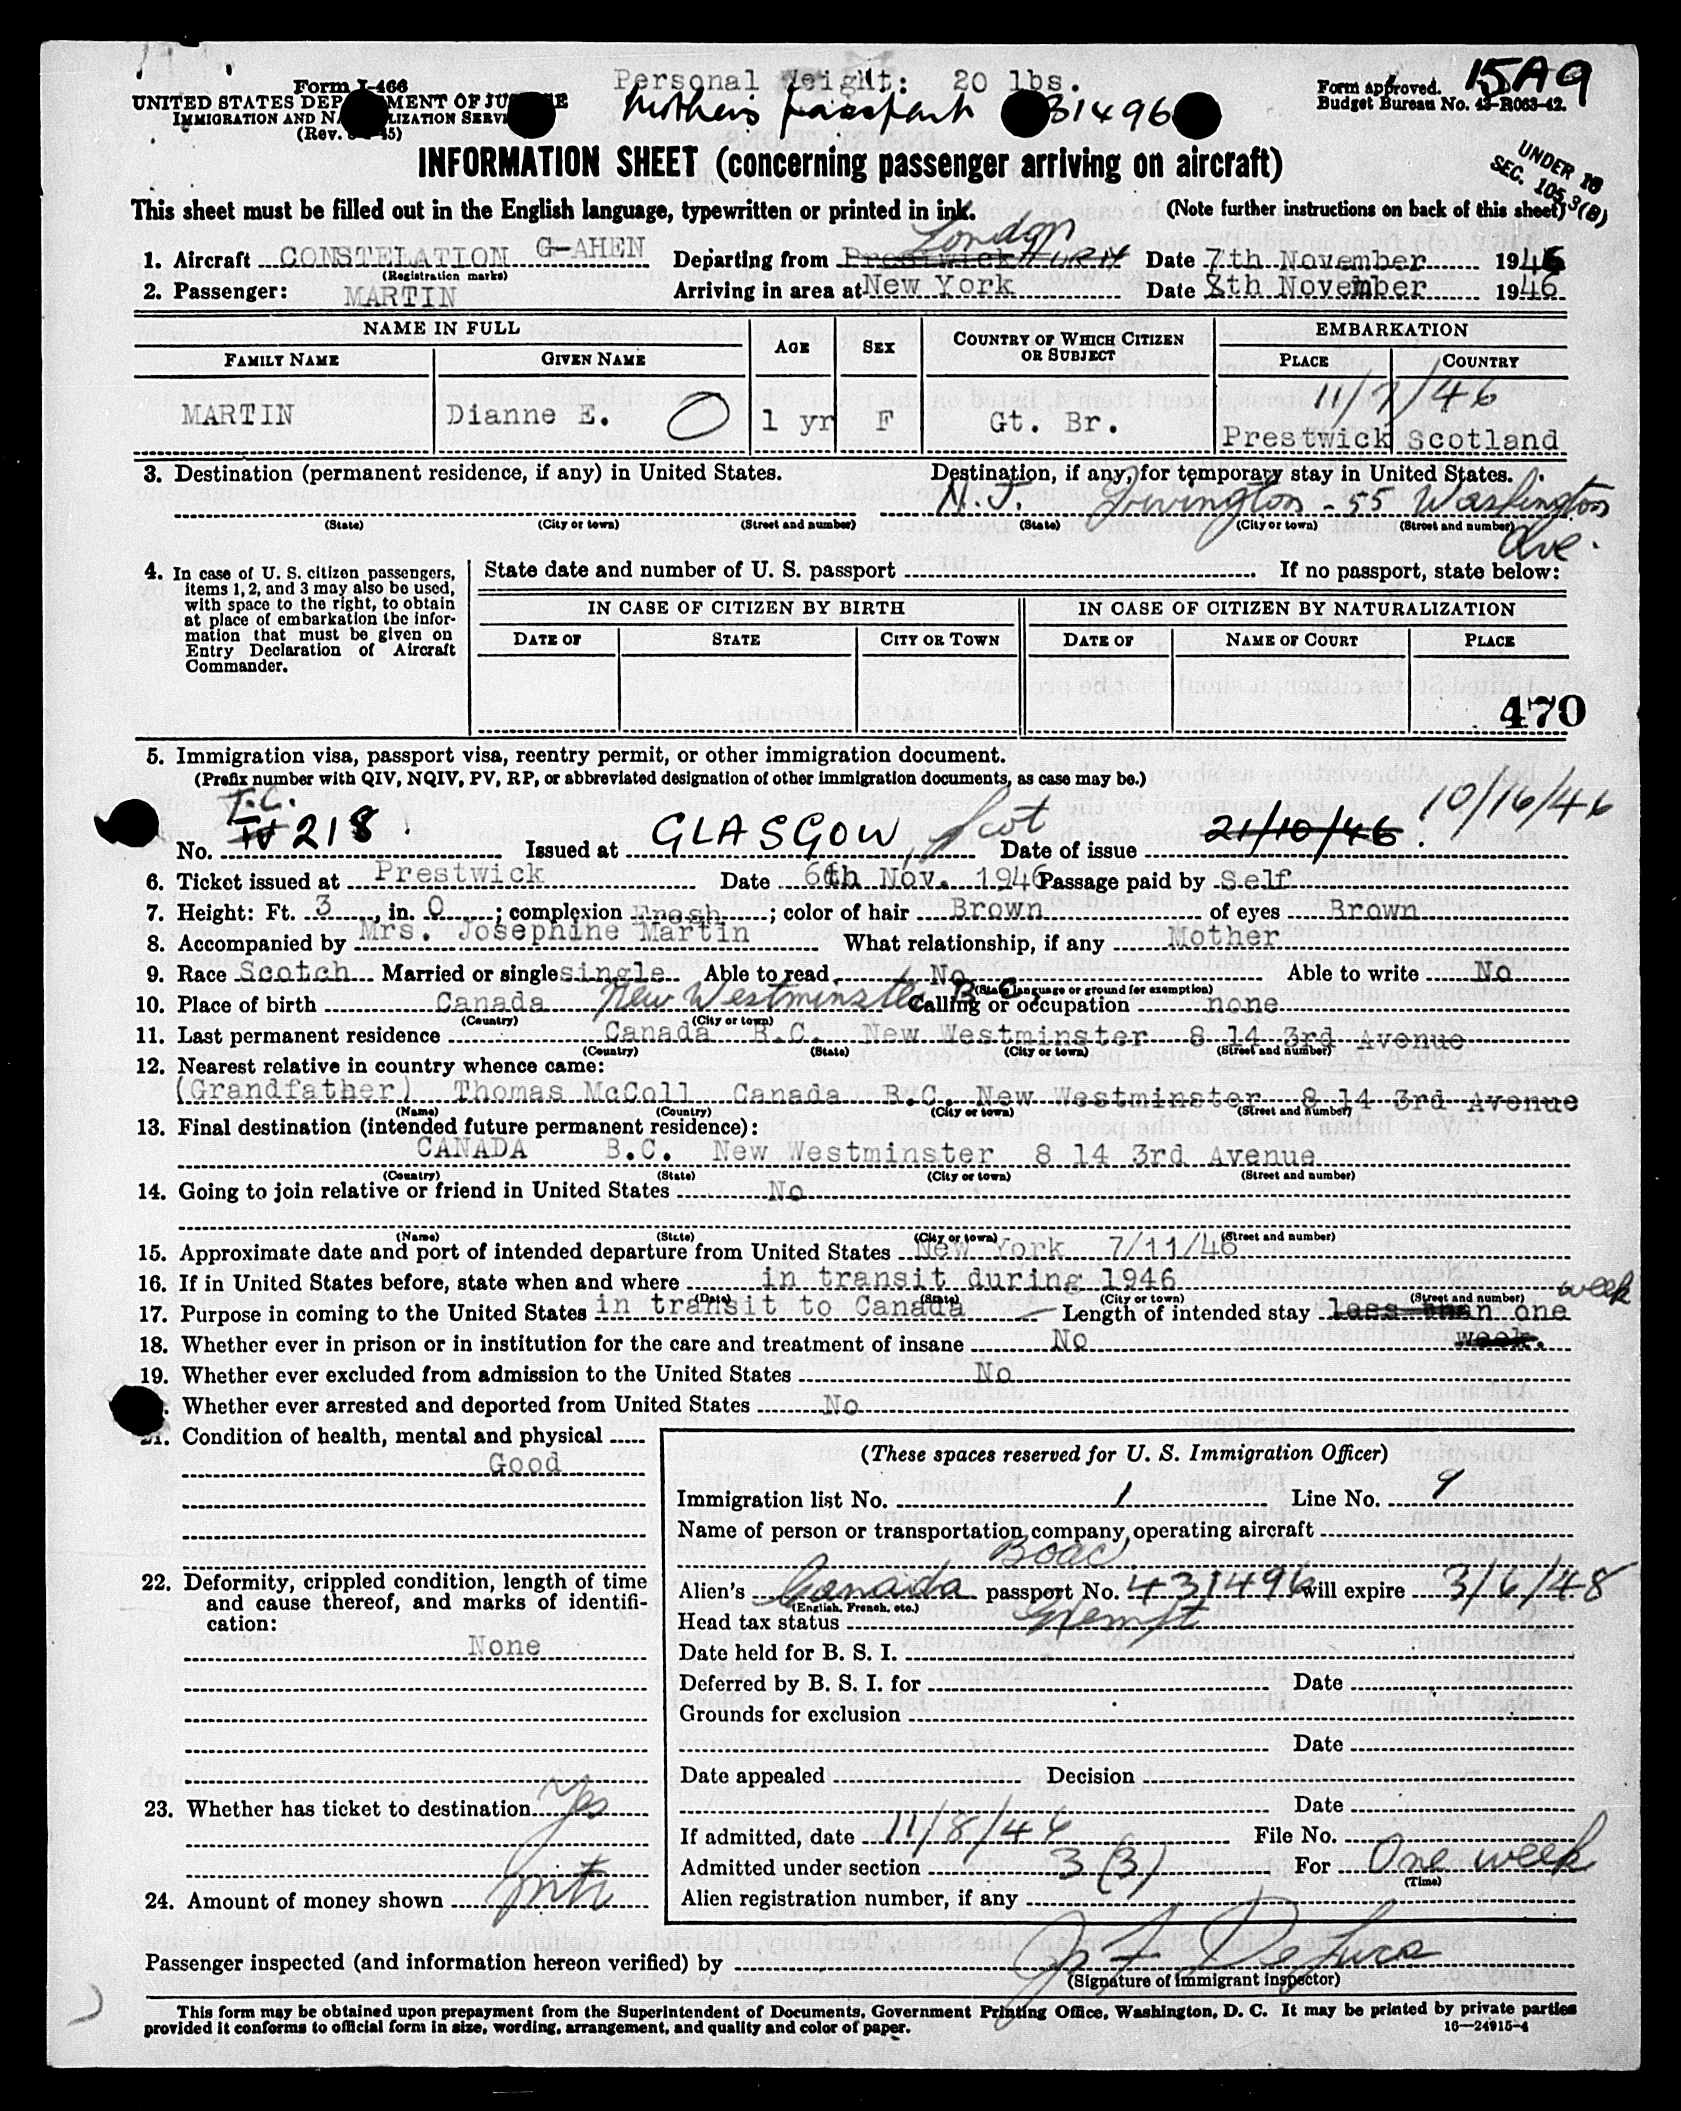 Form I-466
UNITED STATES DEP MENT OF JU E
IMMIGRATION AND NA LIZATION SERVI
(Rev. 45)
Personal Weight: 20 lbs.
Mother's passport 31496
Form approved.
Budget Bureau No. 43-R063-42.
15A9
UNDER 16
SEC. 105.3(B)
INFORMATION SHEET (concerning passenger arriving on aircraft)
This sheet must be filled out in the English language, typewritten or printed in ink. (Note further instructions on back of this sheet)
London
1. Aircraft CONSTELATION G-AHEN Departing from Prestwick Date 7th November 1946
(Registration marks)
2. Passenger: MARTIN Arriving in area at New York Date 8th November 1946.
NAME IN FULL AGE SEX COUNTRY OF WHICH CITIZEN OR SUBJECT EMBARKATION
FAMILY NAME GIVEN NAME PLACE COUNTRY
11/7/46
MARTIN Dianne E. O 1 yr F Gt. Br. Prestwick Scotland
3. Destination (permanent residence, if any) in United States. Destination, if any, for temporary stay in United States.
N.J. Irvington - 55 Washington Ave.
(State) (City or town) (Street and number) (State) (City or town) (Street and number)
4. In case of U. S. citizen passengers, items 1, 2, and 3 may also be used, with space to the right, to obtain at place of embarkation the information that must be given on Entry Declaration of Aircraft Commander.
State date and number of U. S. passport If no passport, state below:
IN CASE OF CITIZEN BY BIRTH IN CASE OF CITIZEN BY NATURALIZATION
DATE OF STATE CITY OR TOWN DATE OF NAME OF COURT PLACE
470
5. Immigration visa, passport visa, reentry permit, or other immigration document.
(Prefix number with QIV, NQIV, PV, RP, or abbreviated designation of other immigration documents, as case may be.)
T.C.
No. IV 218 Issued at GLASGOW, Scot Date of issue 21/10/46. 10/16/46
6. Ticket issued at Prestwick Date 6th Nov. 1946 Passage paid by Self
7. Height: Ft. 3, in. 0; complexion Fresh; color of hair Brown of eyes Brown
8. Accompanied by Mrs. Josephine Martin What relationship, if any Mother
9. Race Scotch Married or single single Able to read No Able to write No
(State language or ground for exemption)
10. Place of birth Canada New Westminster B.C. Calling or occupation none
(Country) (City or town)
11. Last permanent residence Canada B.C. New Westminster 8 14 3rd Avenue
(Country) (State) (City or town) (Street and number)
12. Nearest relative in country whence came:
(Grandfather) Thomas McColl Canada B.C. New Westminster 8 14 3rd Avenue
(Name) (Country) (City or town) (Street and number)
13. Final destination (intended future permanent residence):
CANADA B.C. New Westminster 8 14 3rd Avenue
(Country) (State) (City or town) (Street and number)
14. Going to join relative or friend in United States No
(Name) (State) (City or town) (Street and number)
15. Approximate date and port of intended departure from United States New York 7/11/46
16. If in United States before, state when and where in transit during 1946
(Date) (State) (City or town) (Street and number)
17. Purpose in coming to the United States in transit to Canada Length of intended stay less than one week
week.
18. Whether ever in prison or in institution for the care and treatment of insane No
19. Whether ever excluded from admission to the United States No
. Whether ever arrested and deported from United States No
21. Condition of health, mental and physical
Good
22. Deformity, crippled condition, length of time and cause thereof, and marks of identification:
None
23. Whether has ticket to destination Yes
24. Amount of money shown
(These spaces reserved for U. S. Immigration Officer)
Immigration list No. 1 Line No. 9
Name of person or transportation company operating aircraft
BOAC
Alien's Canada passport No. 431496 will expire 3/6/48
(English, French, etc.)
Head tax status Exempt
Date held for B. S. I.
Deferred by B. S. I. for Date
Grounds for exclusion
Date
Date appealed Decision
Date
If admitted, date 11/8/46 File No.
Admitted under section 3(3) For One week
(Time)
Alien registration number, if any
Passenger inspected (and information hereon verified) by J F DeLuca
(Signature of immigrant inspector)
This form may be obtained upon prepayment from the Superintendent of Documents, Government Printing Office, Washington, D. C. It may be printed by private parties
provided it conforms to official form in size, wording, arrangement, and quality and color of paper.
16—24915-4